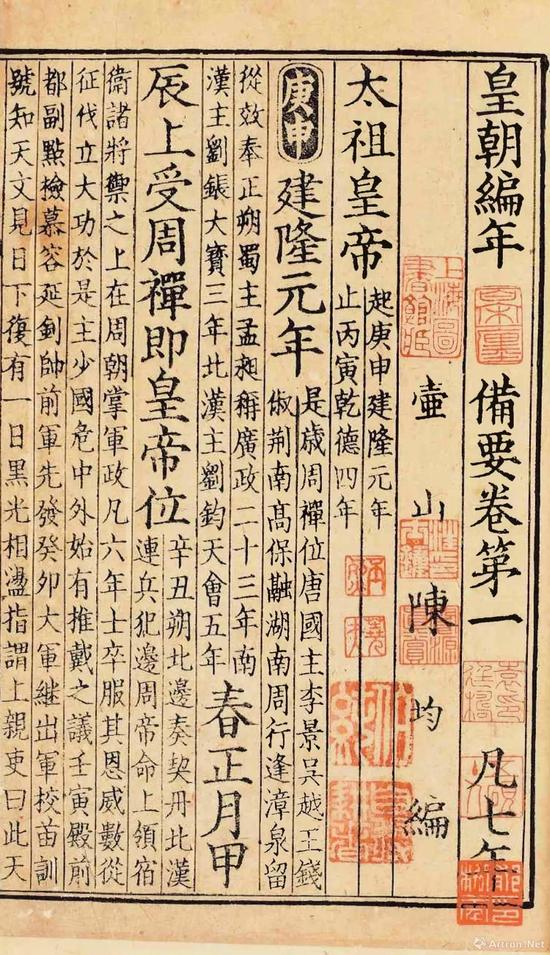 皇朝編年備要卷第一 凡七年
壺山陳均編
太祖皇帝 起庚申建隆元年
止丙寅乾德四年
庚申 建隆元年 是歲周禪位唐國主李景吳越王錢
俶荆南高保融湖南周行逢漳泉留
從效奉正朔蜀主孟昶稱廣政二十三年南
漢主劉鋹大寶三年北漢主劉鈞天會五年 春正月甲
辰上受周禪即皇帝位 辛丑朔北邊奏契丹北漢
連兵犯邊周帝命上領宿
衛諸將禦之上在周朝掌軍政凡六年士卒服其恩威數從
征伐立大功於是主少國危中外始有推戴之議壬寅殿前
都副點檢慕容延釗帥前軍先發癸卯大軍継出軍校苗訓
號知天文見日下復有一日黑光相盪指謂上親吏曰此天
上海圖書館藏
Artron.Net